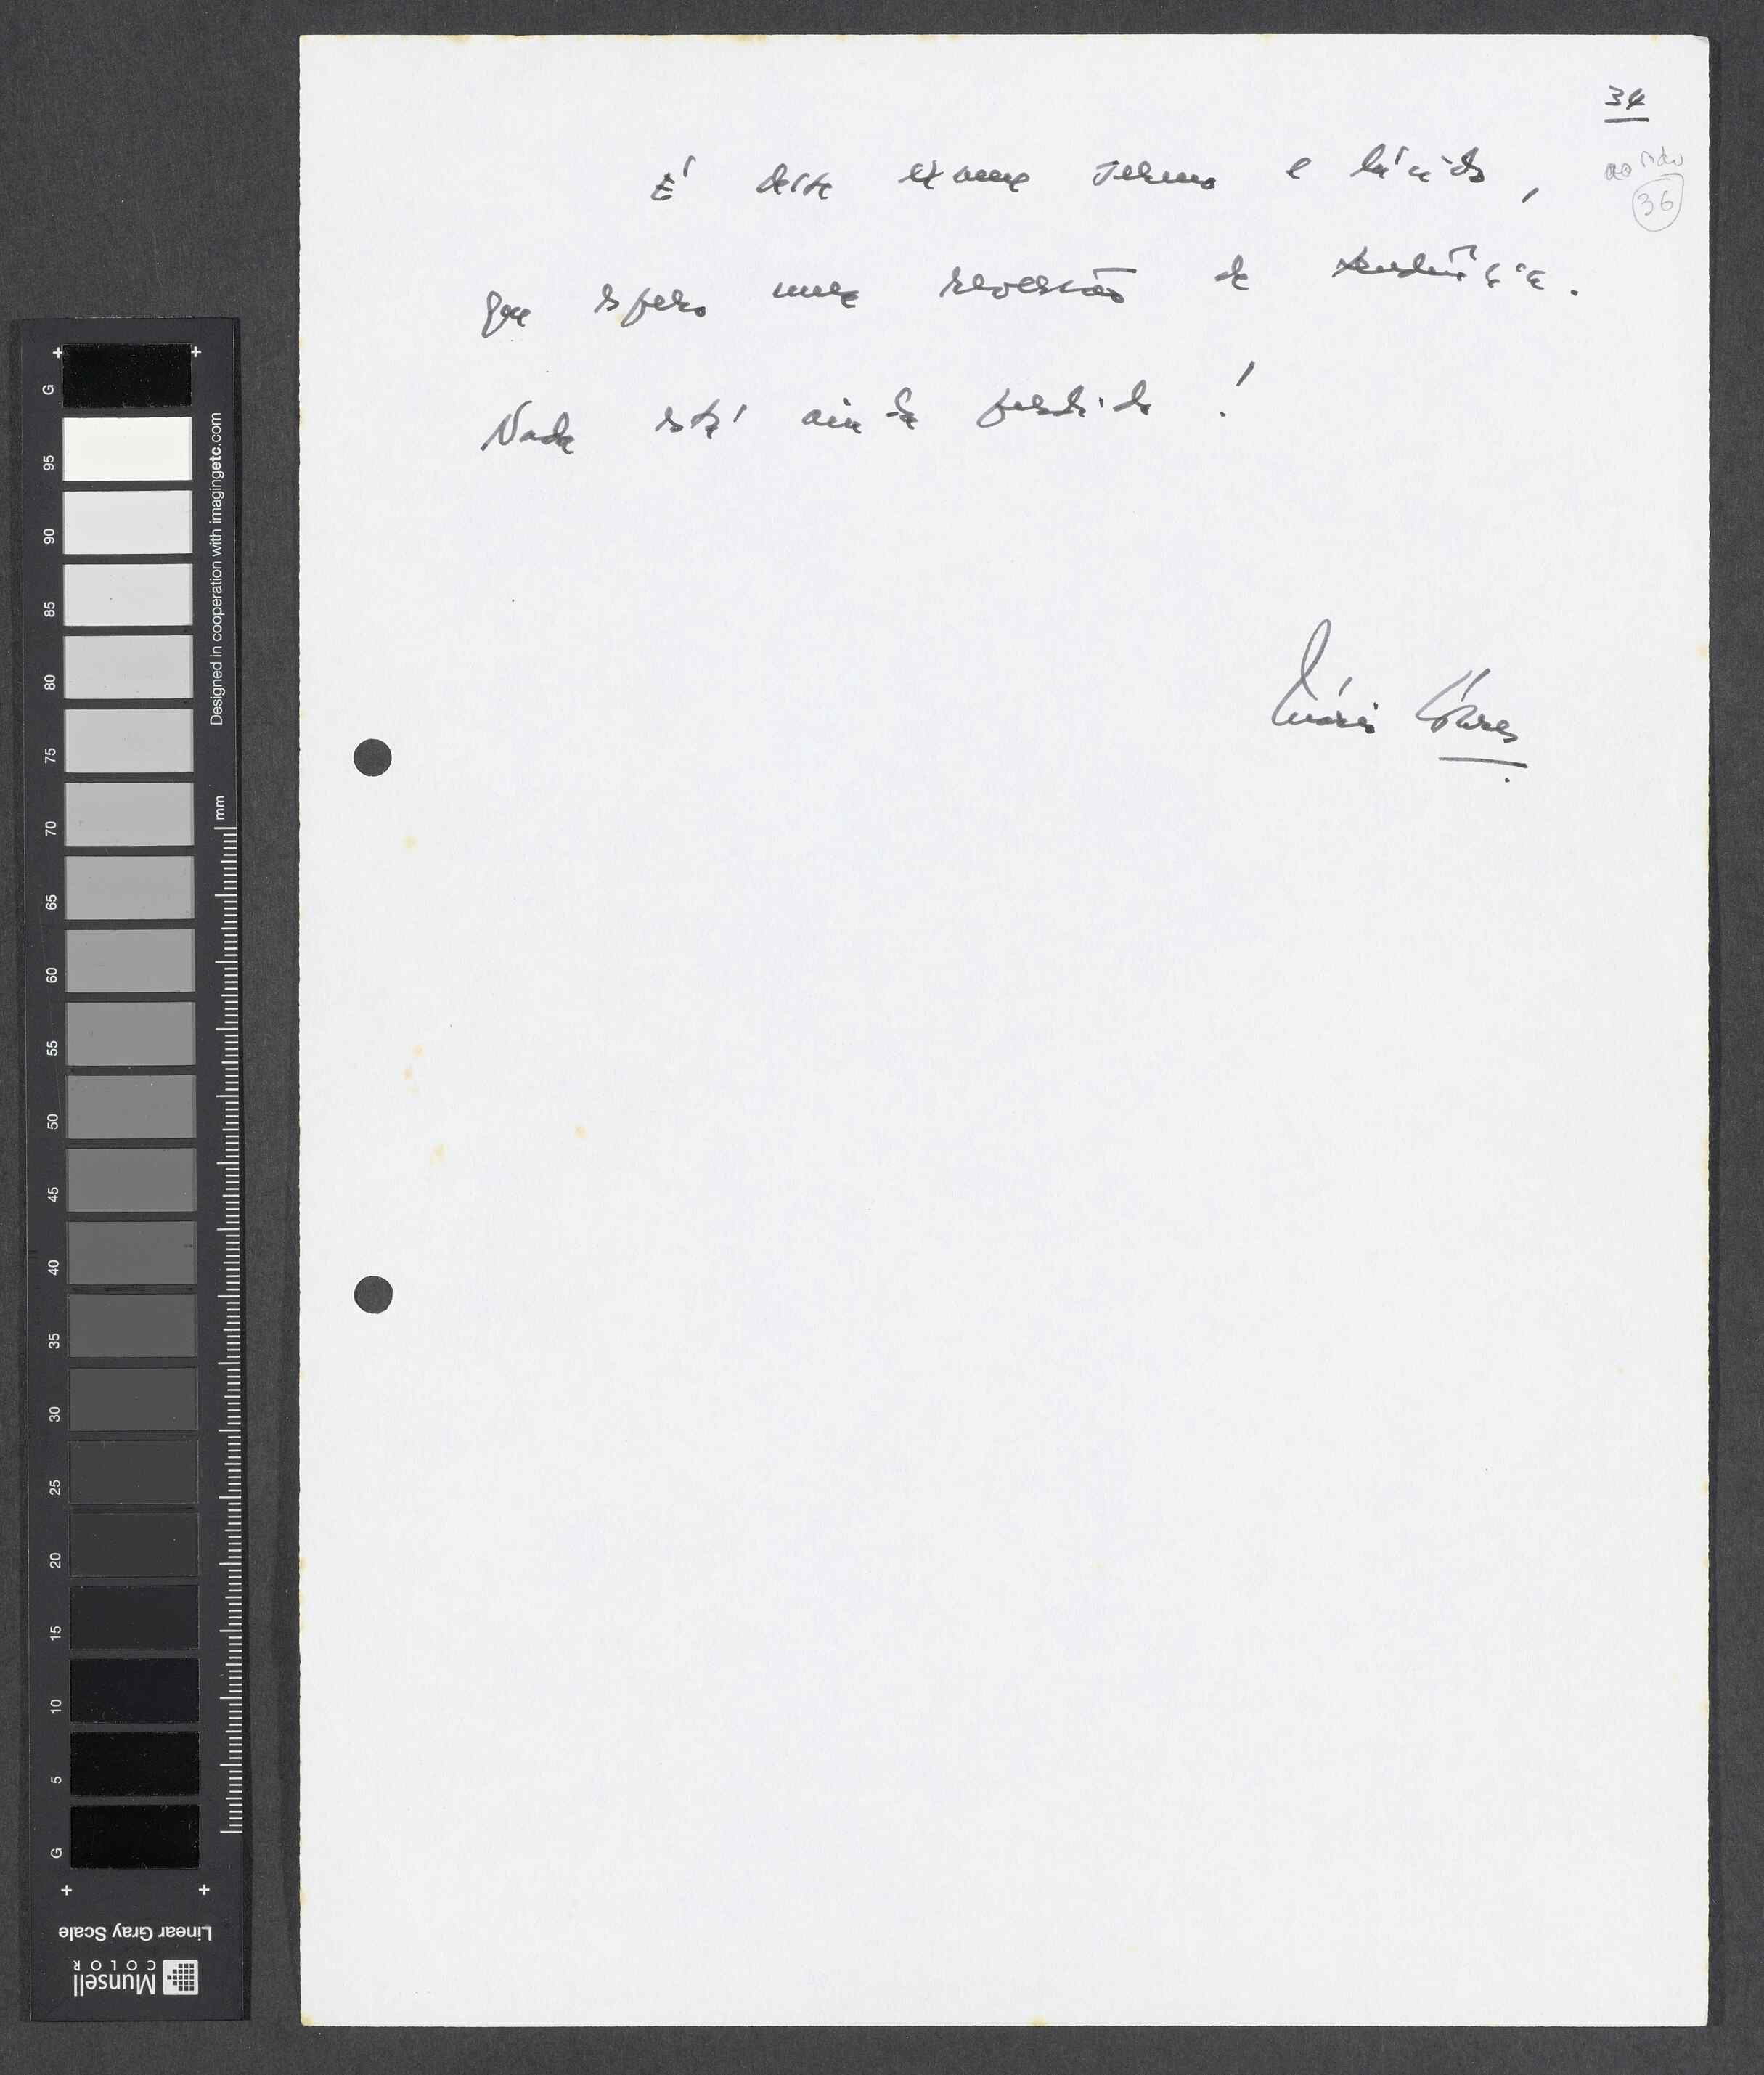 34
36
É deste exame sereno e lúcido,
que espero uma reversão de tendência.
Nada está ainda perdido!
Mário Soares
G
95
90
85
80
75
70
65
60
55
50
45
40
35
30
25
20
15
10
5
G
Designed in cooperation with imagingetc.com
mm
Linear Gray Scale
Munsell
COLOR